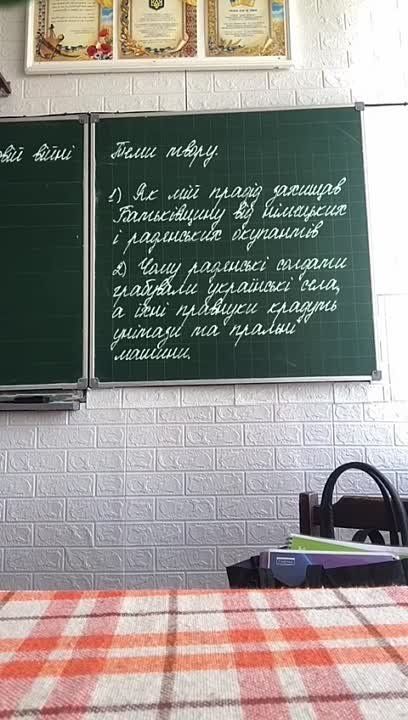 вій війні
Теми твору.
1) Як мій прадід захищав
Батьківщину від німецьких
і радянських окупантів
2) Чому радянські солдати
грабували українські села,
а їхні правнуки крадуть
унітази та пральні
машини.